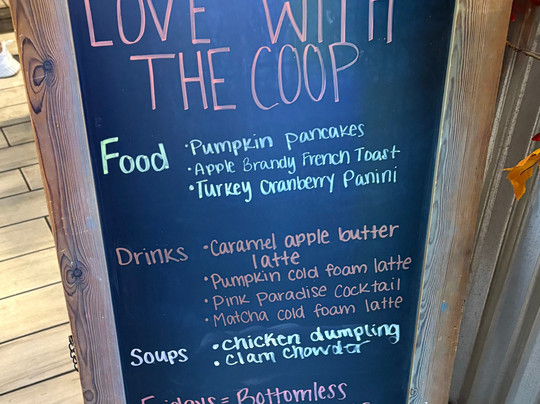 LOVE WITH
THE COOP
Food
• Pumpkin pancakes
• Apple Brandy French Toast
• Turkey Cranberry Panini
Drinks
• Caramel apple butter
latte
• Pumpkin cold foam latte
• Pink Paradise Cocktail
• Matcha cold foam latte
Soups
• chicken dumpling
• clam chowder
Fridays = Bottomless